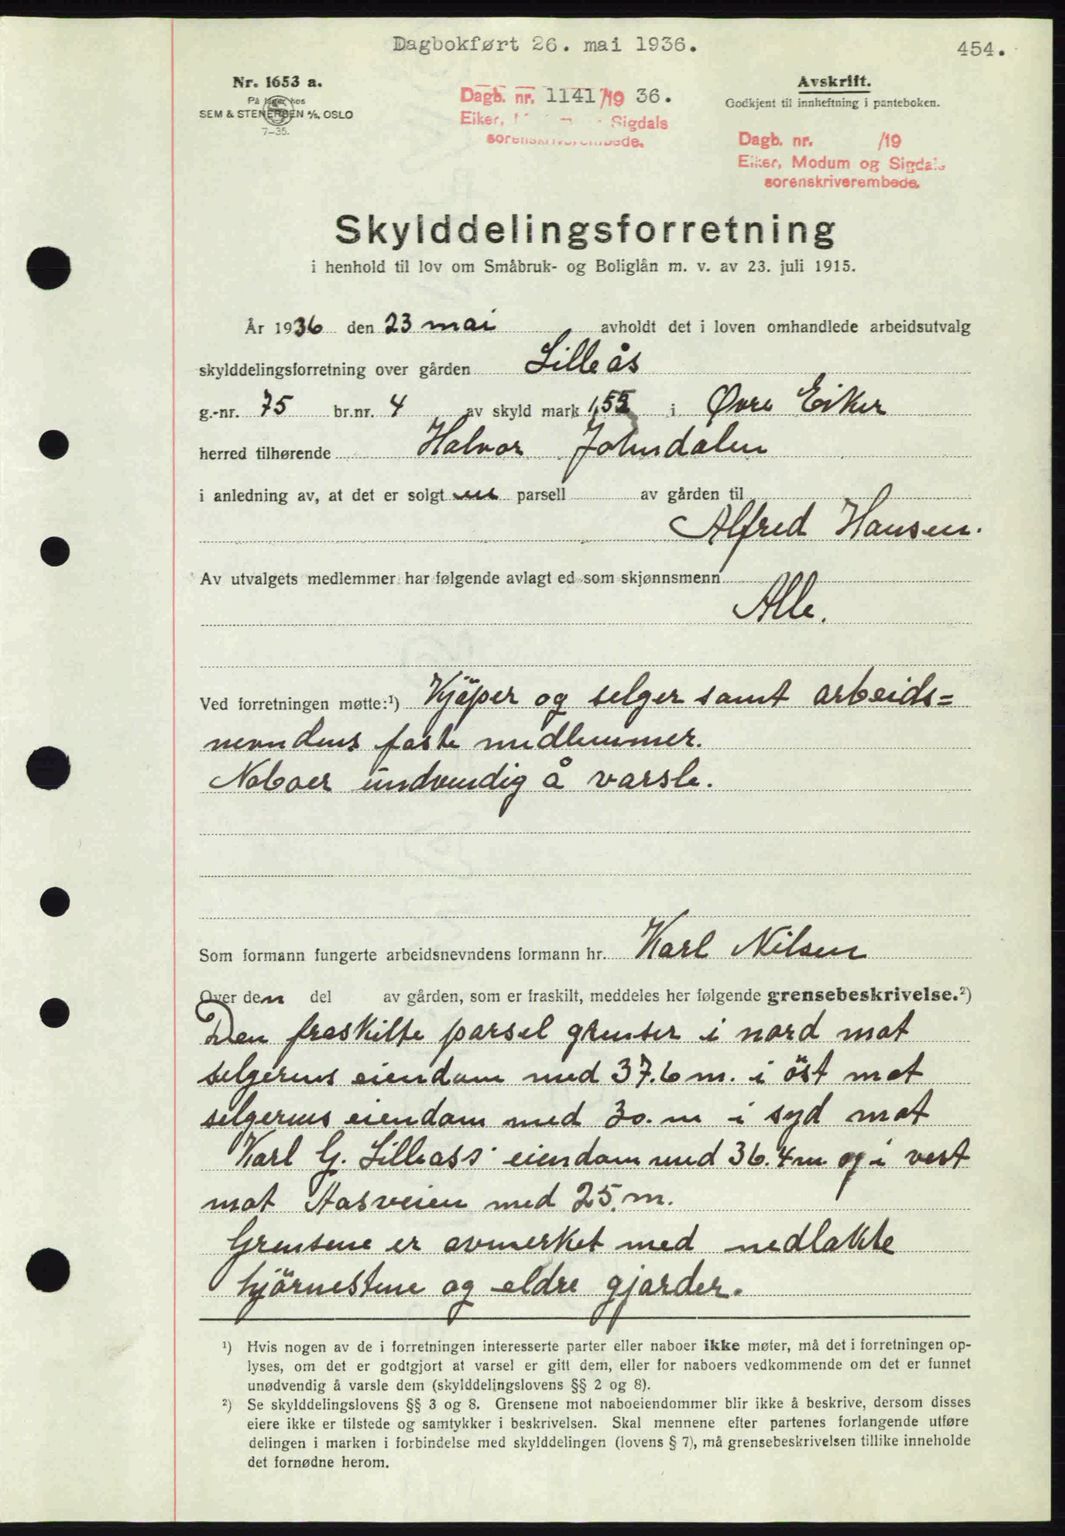 Dagbokført 26. mai 1936.
454.
Nr. 1653 a.
På lager hos
SEM & STENERSEN A/S, OSLO
7–35.
Dagb. nr. 1141/19 36.
Eiker, Sigdals
Avskrift.
Godkjent til innheftning i panteboken.
Dagb. nr. /19
Eiker, Modum og Sigdals
sorenskriverembede.
Skylddelingsforretning
i henhold til lov om Småbruk- og Boliglån m. v. av 23. juli 1915.
År 1936 den 23 mai avholdt det i loven omhandlede arbeidsutvalg
skylddelingsforretning over gården Lilleås
g.-nr. 75 br.nr. 4 av skyld mark 1,55 i Øvre Eiker
herred tilhørende Halvor Johndalen
i anledning av, at det er solgt en parsell av gården til
Alfred Hansen.
Av utvalgets medlemmer har følgende avlagt ed som skjønnsmenn
Alle.
Ved forretningen møtte:¹) Kjöper og selger samt arbeids=
nevndens faste medlemmer.
Naboer unödvendig å varsle.
Som formann fungerte arbeidsnevndens formann hr. Karl Nilsen
Over den del av gården, som er fraskilt, meddeles her følgende grensebeskrivelse.²)
Den fraskilte parsel grenser i nord mot
selgerens eiendom med 37.6 m. i öst mot
selgerens eiendom med 30. m i syd mot
Karl G. Lilleaas' eiendom med 36.4 m og i vest
mot Aasveien med 25. m.
Grensene er avmerket med nedlakte
hjörnestene og eldre gjerder.
¹) Hvis nogen av de i forretningen interesserte parter eller naboer ikke møter, må det i forretningen op-
lyses, om det er godtgjort at varsel er gitt dem, eller for naboers vedkommende om det er funnet
unødvendig å varsle dem (skylddelingslovens §§ 2 og 8).
²) Se skylddelingslovens §§ 3 og 8. Grensene mot naboeiendommer blir ikke å beskrive, dersom disses
eiere ikke er tilstede og samtykker i beskrivelsen. Skal mennene efter partenes forlangende utføre
delingen i marken i forbindelse med skylddelingen (lovens § 7), må grensebeskrivelsen tillike inneholde
det fornødne herom.